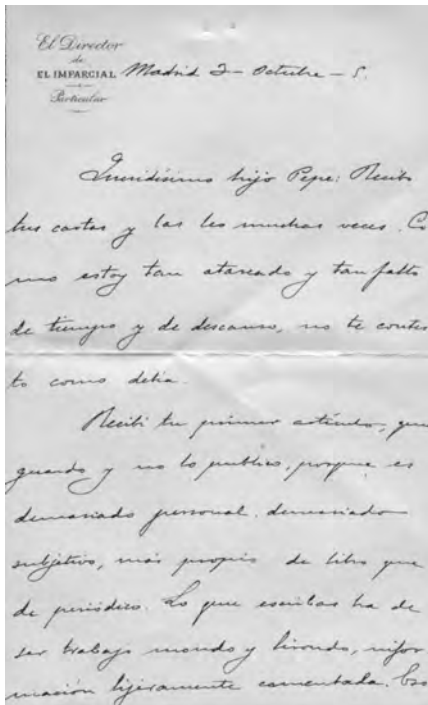 El Director
de
EL IMPARCIAL
Particular
Madrid 2 - Octubre - 5.
Queridísimo hijo Pepe: Recibo
tus cartas y las leo muchas veces. Co
mo estoy tan atareado y tan falto
de tiempo y de descanso, no te contes
to como debia.
Recibí tu primer artículo, que
guardo y no lo publico, porque es
demasiado personal, demasiado
subjetivo, más propio de libro que
de periódico. Lo que escribas ha de
ser trabajo mondo y lirondo, infor
mación lijeramente comentada. Eso